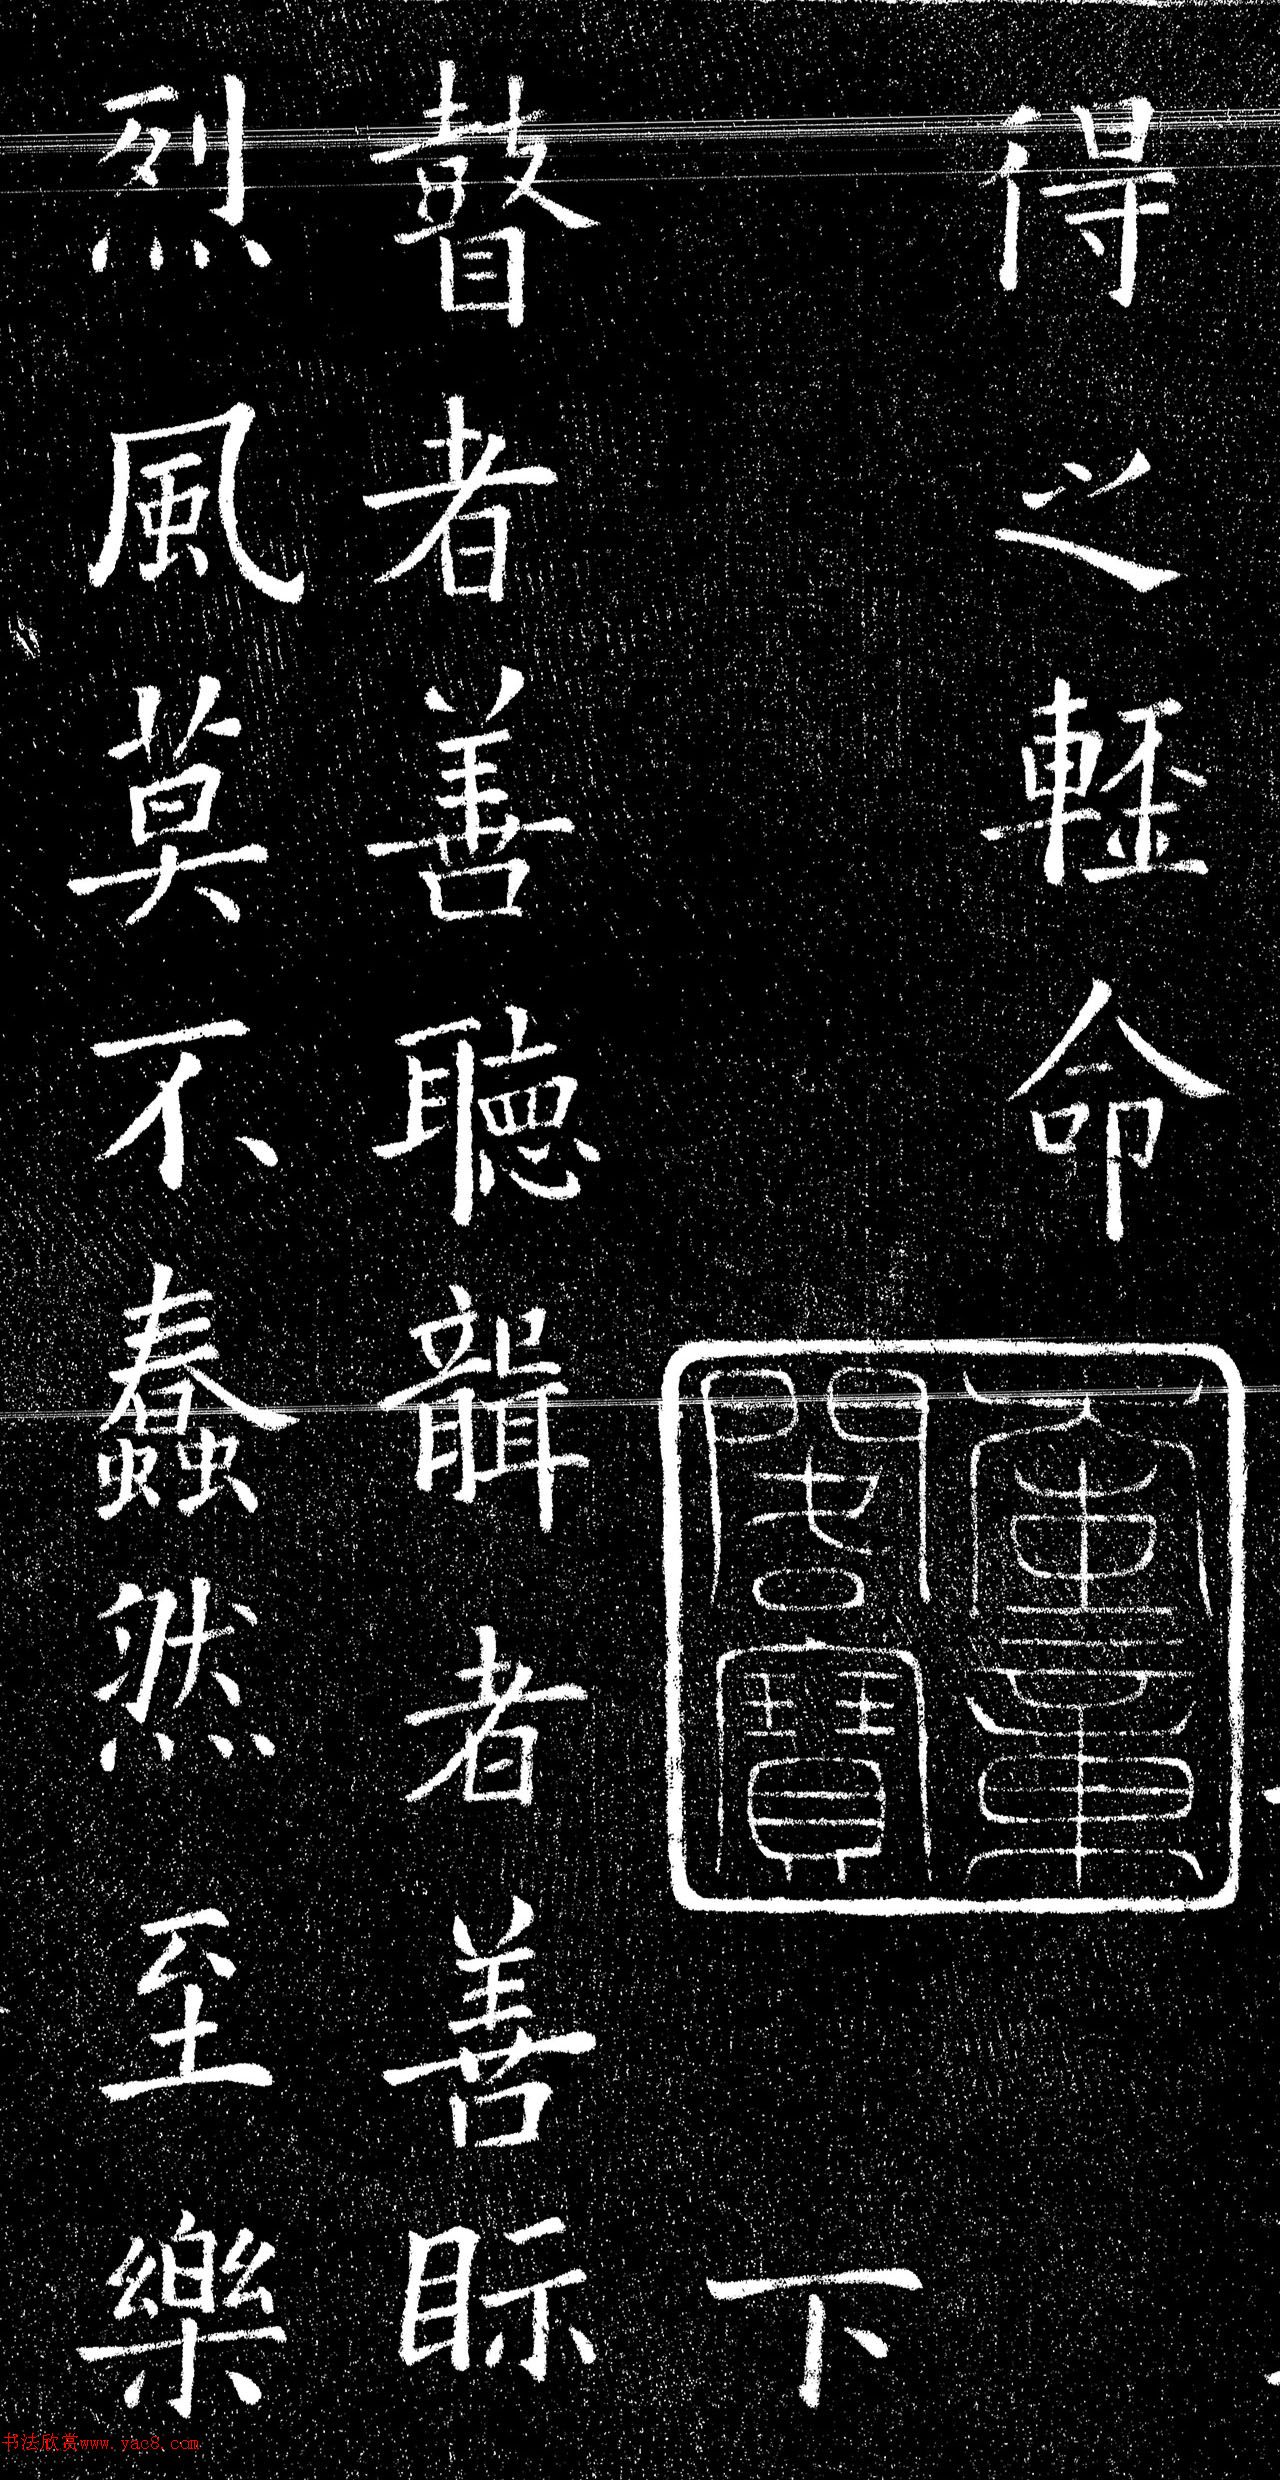 得之輕命
下
瞽者善聽聾者善眎
烈風莫不蠢然至樂
书法欣赏www.yac8.com